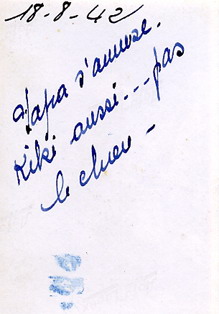 18-8-42
Papa s'amuse.
Kiki aussi... pas
le chien -